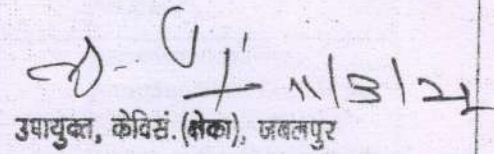 11/3/21
उपायुक्त, केविसं.(क्षेका), जबलपुर